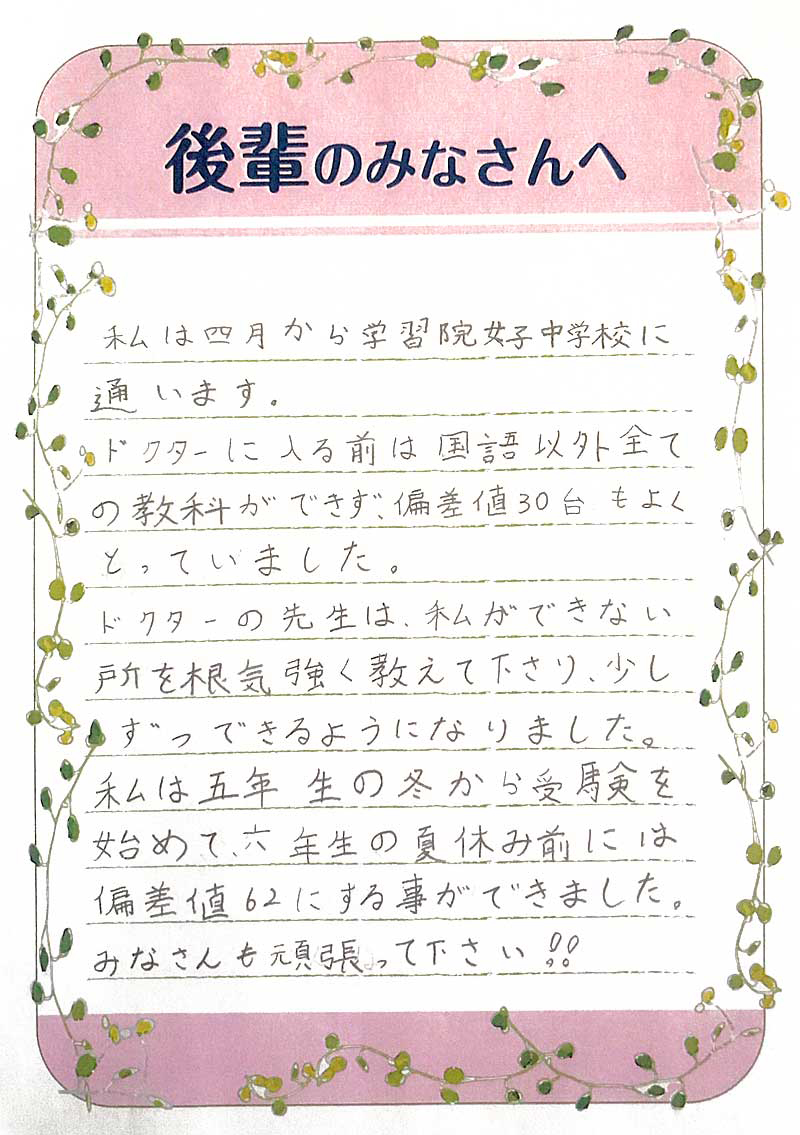 後輩のみなさんへ
私は四月から学習院女子中学校に
通います。
ドクターに入る前は国語以外全て
の教科ができず、偏差値30台もよく
とっていました。
ドクターの先生は、私ができない
所を根気強く教えて下さり、少し
ずつできるようになりました。
私は五年生の冬から受験を
始めて、六年生の夏休み前には
偏差値62にする事ができました。
みなさんも頑張って下さい!!